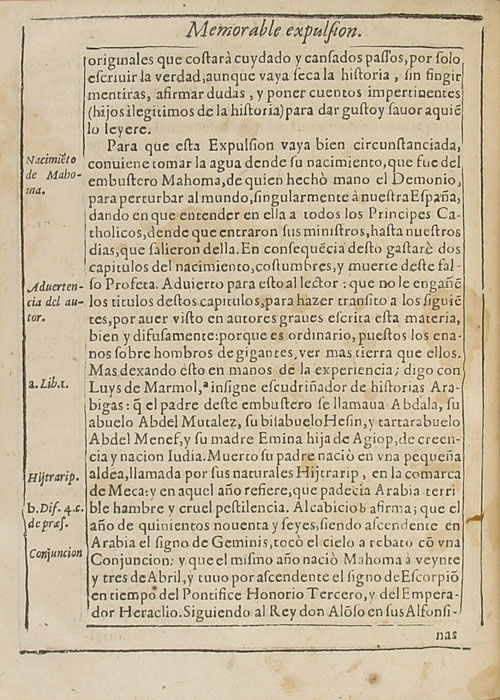 Memorable expulſion.
originales que coſtarà cuydado y canſados paſſos, por ſolo
eſcriuir la verdad, aunque vaya ſeca la hiſtoria, ſin fingir
mentiras, afirmar dudas, y poner cuentos impertinentes
(hijos ilegitimos de la hiſtoria) para dar guſto y ſauor aquiẽ
lo leyere.
Para que eſta Expulſion vaya bien circunſtanciada,
Nacimiẽto
conuiene tomar la agua dende ſu nacimiento, que fue del
de Maho-
embuſtero Mahoma, de quien hechò mano el Demonio,
ma.
para perturbar al mundo, ſingularmente à nueſtra Eſpaña,
dando en que entender en ella a todos los Principes Ca-
tholicos, dende que entraron ſus miniſtros, haſta nueſtros
dias, que ſalieron della. En conſequẽcia deſto gaſtarè dos
capitulos del nacimiento, coſtumbres, y muerte deſte fal-
Aduerten-
ſo Profeta. Aduierto para eſto al lector: que no le engañẽ
cia del au-
los titulos deſtos capitulos, para hazer tranſito a los ſiguiẽ
tor.
tes, por auer viſto en autores graues eſcrita eſta materia,
bien y difuſamente: porque es ordinario, pueſtos los ena-
nos ſobre hombros de gigantes, ver mas tierra que ellos.
Mas dexando eſto en manos de la experiencia; digo con
a. Lib. 1.
Luys de Marmol,ª inſigne eſcudriñador de hiſtorias Ara-
bigas: q̃ el padre deſte embuſtero ſe llamaua Abdala, ſu
abuelo Abdel Mutalez, ſu biſabuelo Heſin, y tartarabuelo
Abdel Menef, y ſu madre Emina hija de Agiop, de creen-
cia y nacion Iudia. Muerto ſu padre naciò en vna pequeña
Hijtrarip.
aldea, llamada por ſus naturales Hijtrarip, en la comarca
de Meca: y en aquel año refiere, que padecia Arabia terri
b. Diſ. 4. c.
ble hambre y cruel peſtilencia. Alcabicio b afirma; que el
de præſ.
año de quinientos nouenta y ſeyes, ſiendo aſcendente en
Arabia el ſigno de Geminis, tocò el cielo a rebato cõ vna
Conjuncion
Conjuncion: y que el miſmo año naciò Mahoma à veynte
y tres de Abril, y tuuo por aſcendente el ſigno de Eſcorpiõ
en tiempo del Pontifice Honorio Tercero, y del Empera-
dor Heraclio. Siguiendo al Rey don Alõſo en ſus Alfonſi-
nas